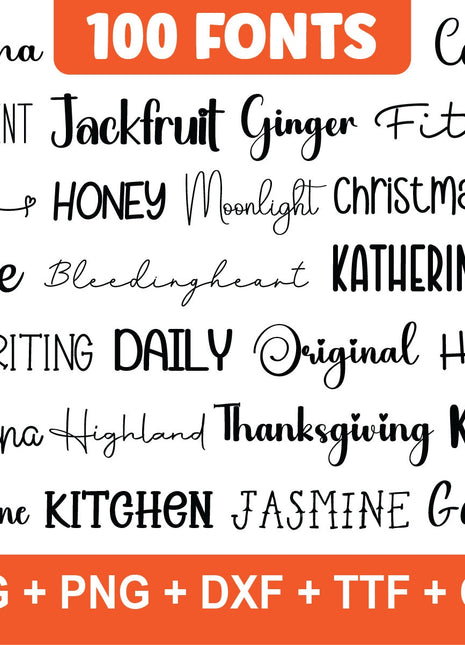 100 FONTS
na Ca
NT Jackfruit Ginger Fit
HONEY Moonlight Christma
e Bleedingheart KATHERIN
RITING DAILY Original H
na Highland Thanksgiving K
ne KITCHEN JASMINE Ga
G + PNG + DXF + TTF +